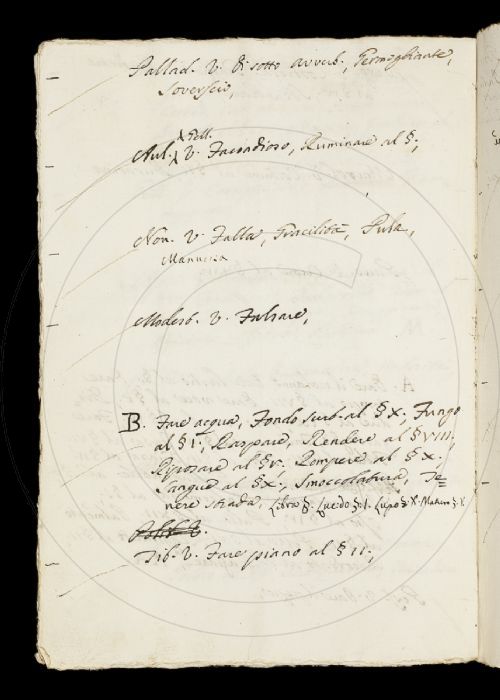 Pallad. V. Di sotto avverb., Germogliante,
Soverscio,
Gell.
Aul. V. Facondioso, Ruminare al §.,
Non. V. Falla, Gracilità, Pula,
Manuzza
Modest. V. Falsare,
B. Fare acqua, Fondo sust. al § X., Fungo
al § I., Raspare, Rendere al § VIII.
Riposare al § V. Rompere al § X.
Sangue al § X., Smoccolatura, Te=
nere strada, Libra §. Lucido §. I. Lupo §. X.
Tib. V. Fare piano al § II.,